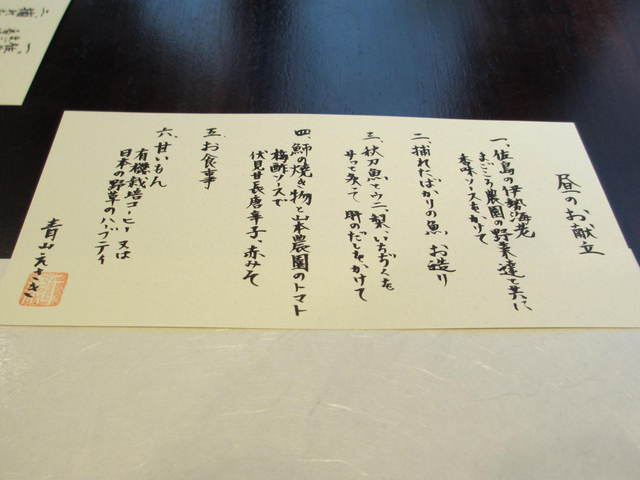 昼のお献立
一、佐島の伊勢海老
まごころ農園の野菜達と共に
香味ソースをかけて
二、捕れたばかりの魚、お造り
三、秋刀魚とウニ、梨、いちじくを
サッと炙って 肝のだしをかけて
四、鰤の焼き物と山本農園のトマト
梅酢ソースで
伏見甘長唐辛子、赤みそ
五、お食事
六、甘いもん
有機栽培コーヒー 又は
日本の野草のハーブティ
青山えさき